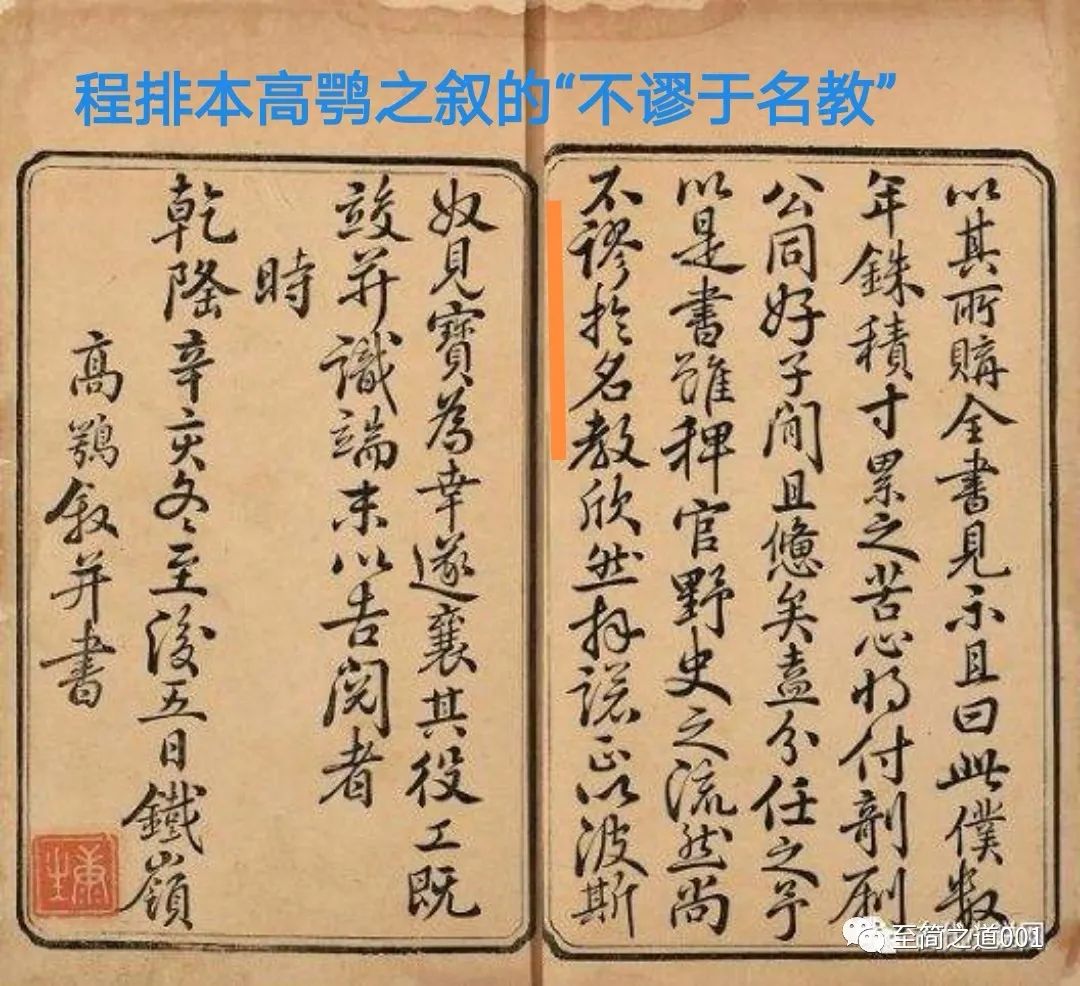 程排本高鹗之叙的“不谬于名教”
以其所購全書見示且曰此僕數
年銖積寸累之苦心將付剞劂
公同好子閒且憊矣盍分任之予
以是書雖稗官野史之流然尚
不謬於名教欣然拜諾正以波斯
奴見寶為幸遂襄其役工既
竣并識端末以告閱者
時
乾隆辛亥冬冬至後五日鐵嶺
高鶚敘并書
至简之道001